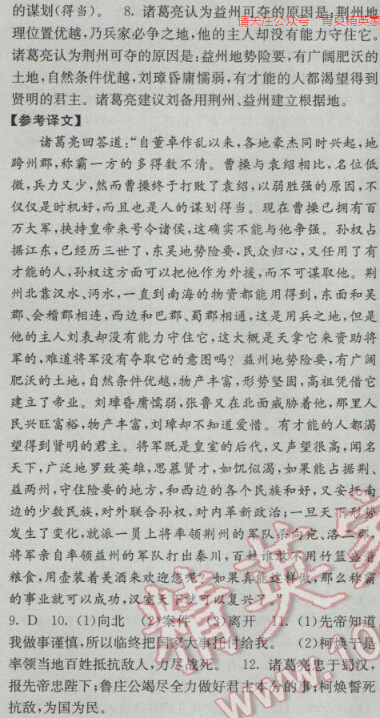 请关注公众号"青夏精英家
的谋划(得当)。 8. 诸葛亮认为益州可夺的原因是:荆州地
理位置优越,乃兵家必争之地,他的主人却没有能力守住它。
诸葛亮认为荆州可夺的原因是:益州地势险要,有广阔肥沃的
土地,自然条件优越,刘璋昏庸懦弱,有才能的人都渴望得到
贤明的君主。诸葛亮建议刘备用荆州、益州建立根据地。
【参考译文】
诸葛亮回答道:“自董卓作乱以来,各地豪杰同时兴起,地
跨州郡,称霸一方的多得数不清。曹操与袁绍相比,名位低
微,兵力又少,然而曹操终于打败了袁绍,以弱胜强的原因,不
仅仅是时机好,而且也是人的谋划得当。现在曹操已拥有百
万大军,挟持皇帝来号令诸侯,这确实不能与他争强。孙权占
据江东,已经历三世了,东吴地势险要,民众归心,又任用了有
才能的人,孙权这方面可以把他作为外援,而不可谋取他。荆
州北靠汉水、沔水,一直到南海的物资都能用得到,东面和吴
郡、会稽郡相连,西边和巴郡、蜀郡相通,这是用兵之地,但是
他的主人刘表却没有能力守住它,这大概是天拿它来资助将
军的,难道将军没有夺取它的意图吗? 益州地势险要,有广阔
肥沃的土地,自然条件优越,物产丰富,形势坚固,高祖凭借它
建立了帝业。刘璋昏庸懦弱,张鲁又在北面威胁着他,那里人
民兴旺富裕,物产丰富,刘璋却不知道爱惜。有才能的人都渴
望得到贤明的君主。将军既是皇室的后代,又声望很高,闻名
天下,广泛地罗致英雄,思慕贤才,如饥似渴,如果能占据荆、
益两州,守住险要的地方,和西边的各个民族和好,又安抚南
边的少数民族,对外联合孙权,对内革新政治;一旦天下形势
发生了变化,就派一员上将率领荆州的军队杀向宛、洛二郡,
将军亲自率领益州的军队打出秦川,百姓谁敢不用竹篮盛着
粮食,用壶装着美酒来欢迎您呢? 如果真能这样做,那么称霸
的事业就可以成功,汉室天下就可以复兴了。”
9. D 10. (1)向北 (2)案件 (3)离开 11. (1)先帝知道
我做事谨慎,所以临终把国家大事托付给我。 (2)柯焕于是
率领当地百姓抵抗敌人,力尽战死。 12. 诸葛亮忠于蜀汉,
报先帝忠陛下;鲁庄公竭尽全力做好君主本分的事;柯焕誓死
抗敌,为国为民。
精英家